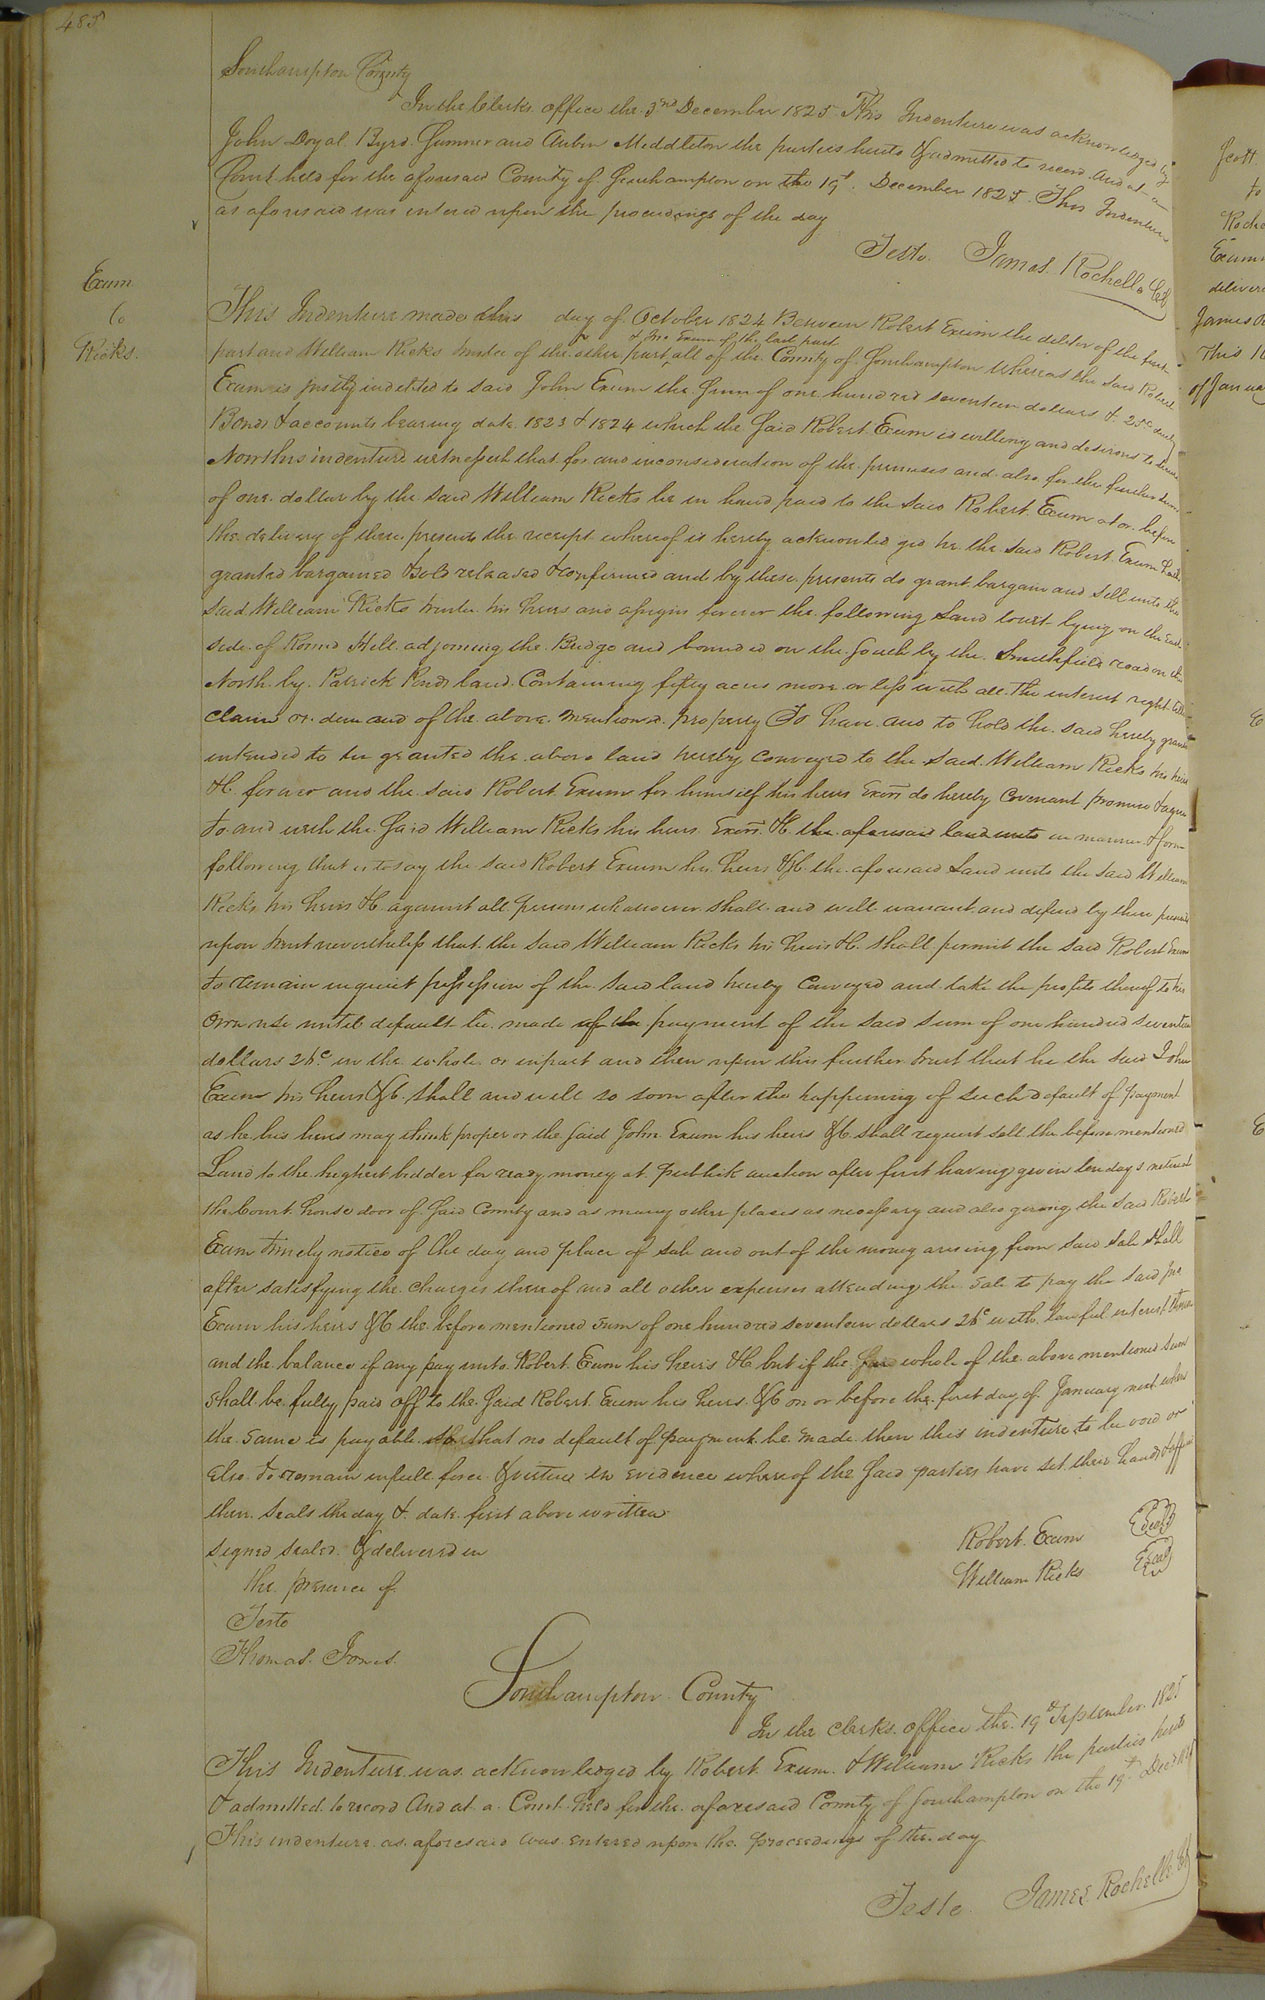 485
Southampton County
In the Clerks office the 3rd December 1825 This Indenture was acknowledged by
John Doyal Byrd Gumner and Aubin Middleton the parties hereto & admitted to record And at a
Court held for the aforesaid County of Southampton on the 19th December 1825 This Indenture
as aforesaid was entered upon the proceedings of the day
Teste James Rochelle Clk
Exum
to
Ricks.
This Indenture made this day of October 1824 Between Robert Exum the debtor of the first
& Jno Exum of the last part
part and William Ricks trustee of the other part all of the County of Southampton whereas the said Robert
Exum is justly indebted to said John Exum the sum of one hundred seventeen dollars & 25c due by
Bonds & accounts bearing date 1823 & 1824 which the said Robert Exum is willing and desirous to secure
Now this indenture witnesseth that for and in consideration of the premises and also for the further sum
of one dollar by the said William Ricks he in hand paid to the said Robert Exum at or before
the delivery of these presents the receipt whereof is hereby acknowledged he the said Robert Exum hath
granted bargained & sold released & confirmed and by these presents do grant bargain and sell unto the
said William Ricks trustee his heirs and assigns forever the following Land tract lying on the East
side of Round Hill adjoining the Bridge and bounded on the South by the Smithfield road on the
North by Patrick Ponds land Containing fifty acres more or less with all the interest right title
claim or demand of the above mentioned property To have and to hold the said hereby granted
intended to be granted the above land hereby conveyed to the said William Ricks his heirs
&C. forever and the said Robert Exum for himself his heirs Exors do hereby Covenant promise & agree
to and with the said William Ricks his heirs Exors &C. the aforesaid land unto in manner & form
following that is to say the said Robert Exum his heirs &C the aforesaid Land unto the said William
Ricks his heirs &C against all persons whatsoever shall and will warrant and defend by these presents
upon trust nevertheless that the said William Ricks his heirs &C. shall permit the said Robert Exum
to remain in quiet possession of the said land hereby Conveyed and take the profits thereof to his
own use until default be made of the payment of the said sum of one hundred seventeen
dollars 25c in the whole or in part and then upon this further trust that he the said John
Exum his heirs &C. shall and will so soon after the happening of such default of payment
as he his heirs may think proper or the said John Exum his heirs &C shall request sell the before mentioned
Land to the highest bidder for ready money at Publick auction after first having given ten days notice at
the Court house door of said County and as many other places as necessary and also giving the said Robert
Exum timely notice of the day and place of sale and out of the money arising from said sale shall
after satisfying the charges thereof and all other expenses attending the sale to pay the said Jno
Exum his heirs &C the before mentioned sum of one hundred seventeen dollars 25c with lawful interest thereon
and the balance if any pay unto Robert Exum his heirs &C but if the whole of the above mentioned sum
shall be fully paid off to the said Robert Exum his heirs &C on or before the first day of January next when
the same is payable so that no default of payment be made then this indenture to be void or
else to remain in full force & virtue in evidence whereof the said parties have set their hands & affixed
their seals the day & date first above written
signed sealed & delivered in Robert Exum (Seal)
the presence of William Ricks (Seal)
Teste
Thomas Jones.
Southampton County
In the clerks office the 19th September 1825
This Indenture was acknowledged by Robert Exum & William Ricks the parties hereto
& admitted to record And at a Court held for the aforesaid County of Southampton on the 19th Decr 1825
This indenture as aforesaid was entered upon the proceedings of the day
Teste James Rochelle Clk
Scott
to
Exum
deliver
James
This 10
of Janua